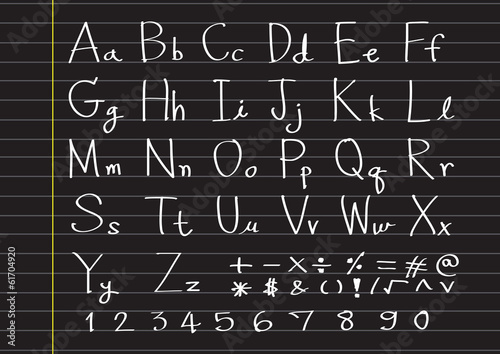 Aa Bb Cc Dd Ee Ff
Gg Hh Ii Jj Kk Ll
Mm Nn Oo Pp Qq Rr
Ss Tt Uu Vv Ww Xx
Yy Zz + - × ÷ % = # @
* $ & ( ) ! / √ ^ ˅
1 2 3 4 5 6 7 8 9 0
Adobe Stock | #61704920